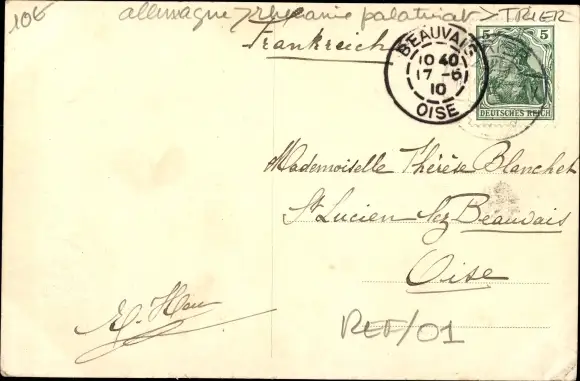 10€
allemagne > rhénanie palatinat > TRIER
Frankreich
BEAUVAIS
10 40
17 -6
10
OISE
5 5
DEUTSCHES REICH
Mademoiselle Thérèse Blanchet
St Lucien lez Beauvais
Oise
REF/01